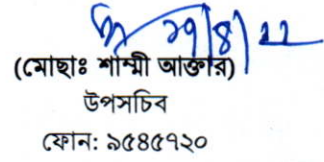 ২৭/৪/২২
(মোছাঃ শাম্মী আক্তার)
উপসচিব
ফোন: ৯৫৪৫৭২০